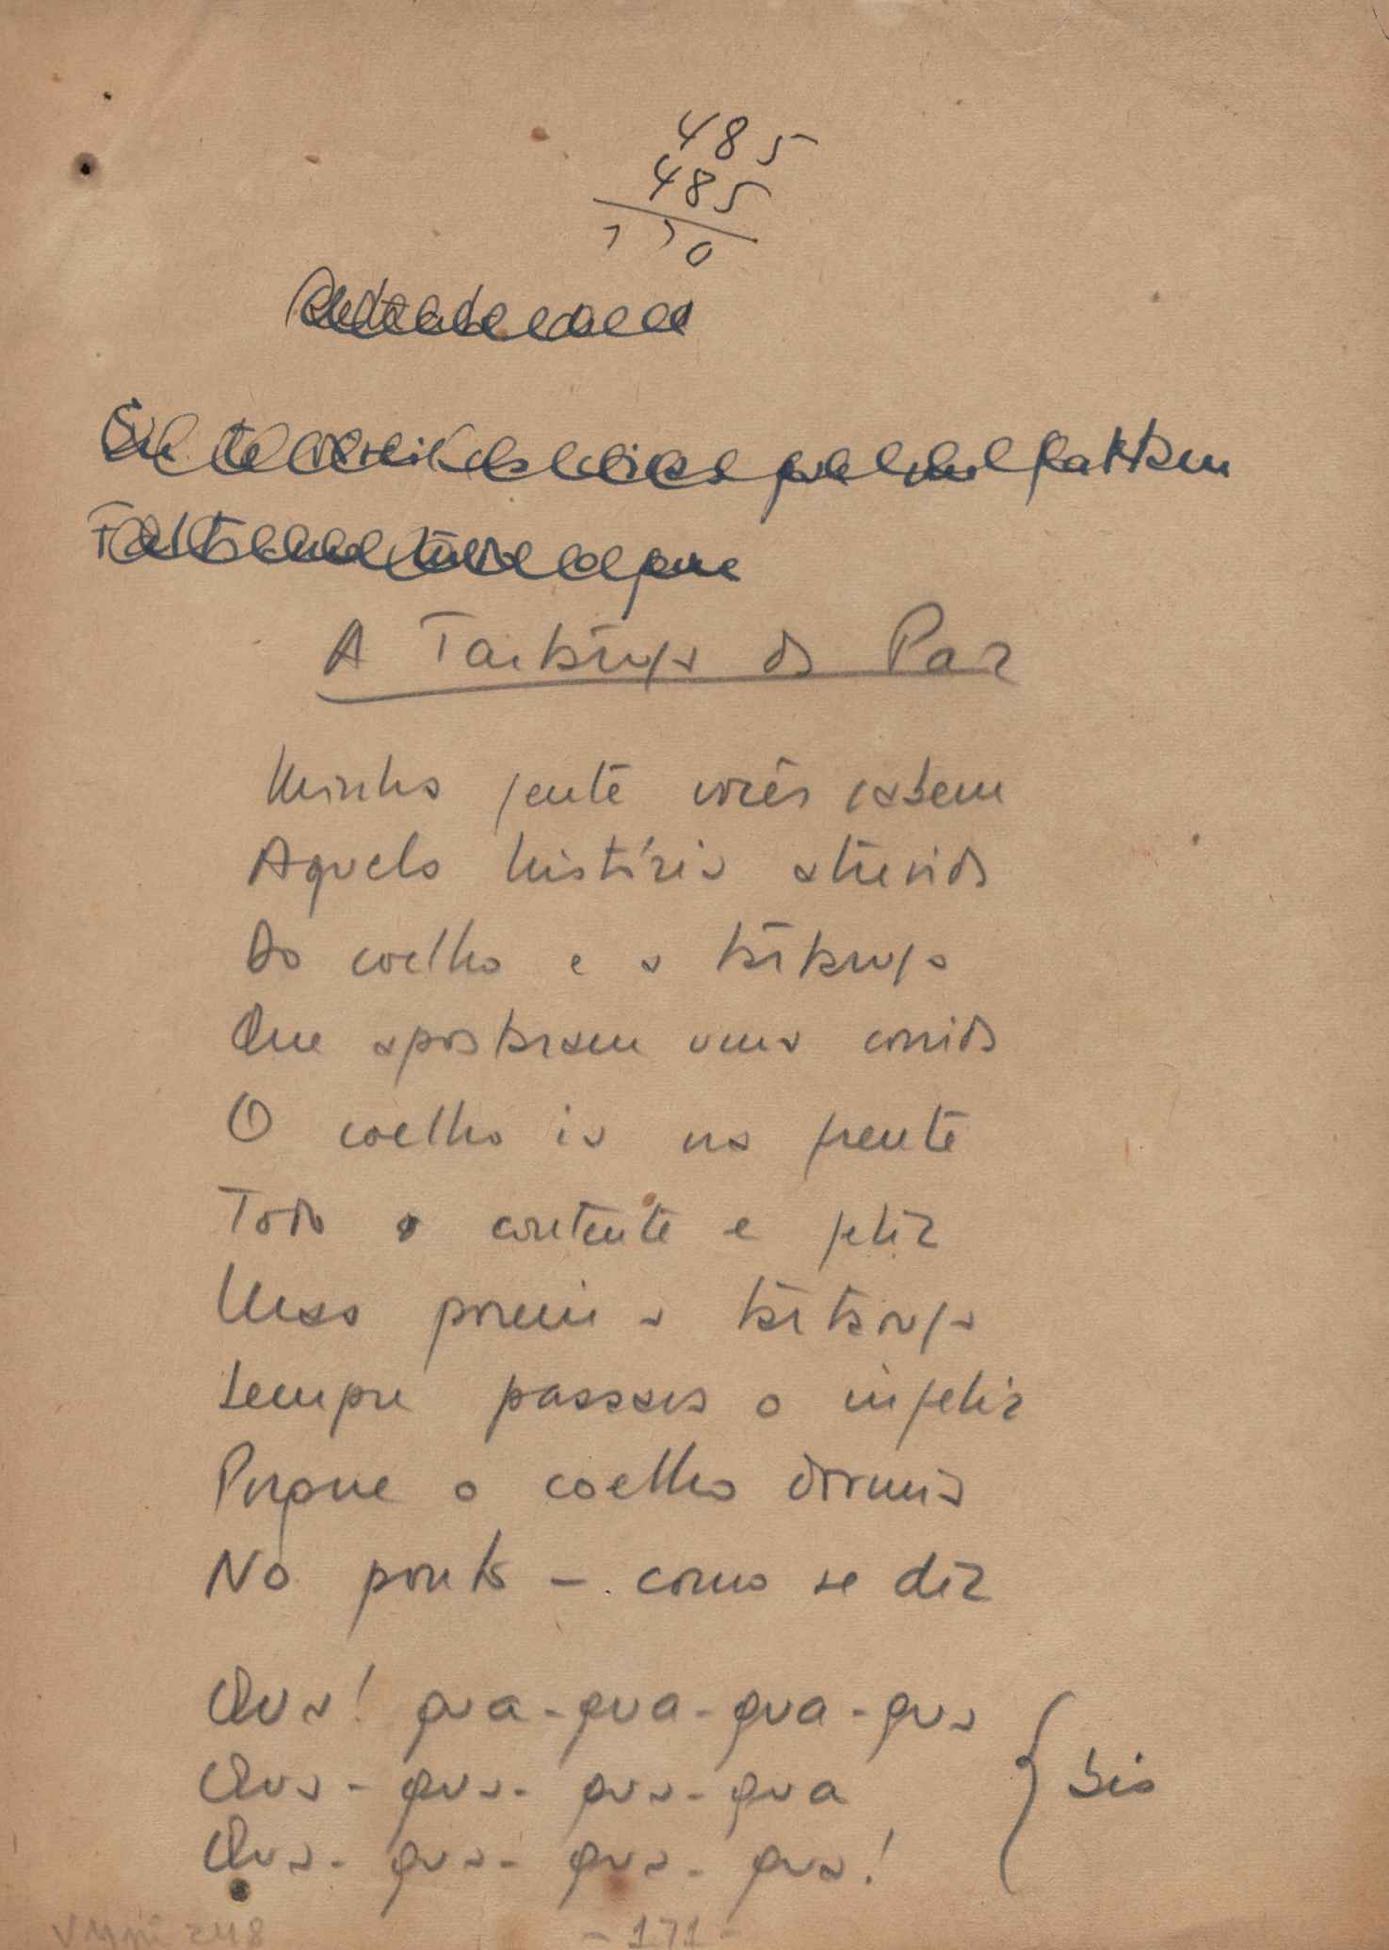 485
485
770
A Tartaruga da Paz
Minha gente vocês sabem
Aquela história atrevida
Do coelho e a tartaruga
Que apostaram uma corrida
O coelho ia na frente
Todo contente e feliz
Mas porém a tartaruga
Sempre passava o infeliz
Porque o coelho dormia
No ponto - como se diz
Qua! qua-qua-qua-qua
Qua-qua-qua-qua
bis
Qua-qua-qua-qua!
VMpi 248
-171-